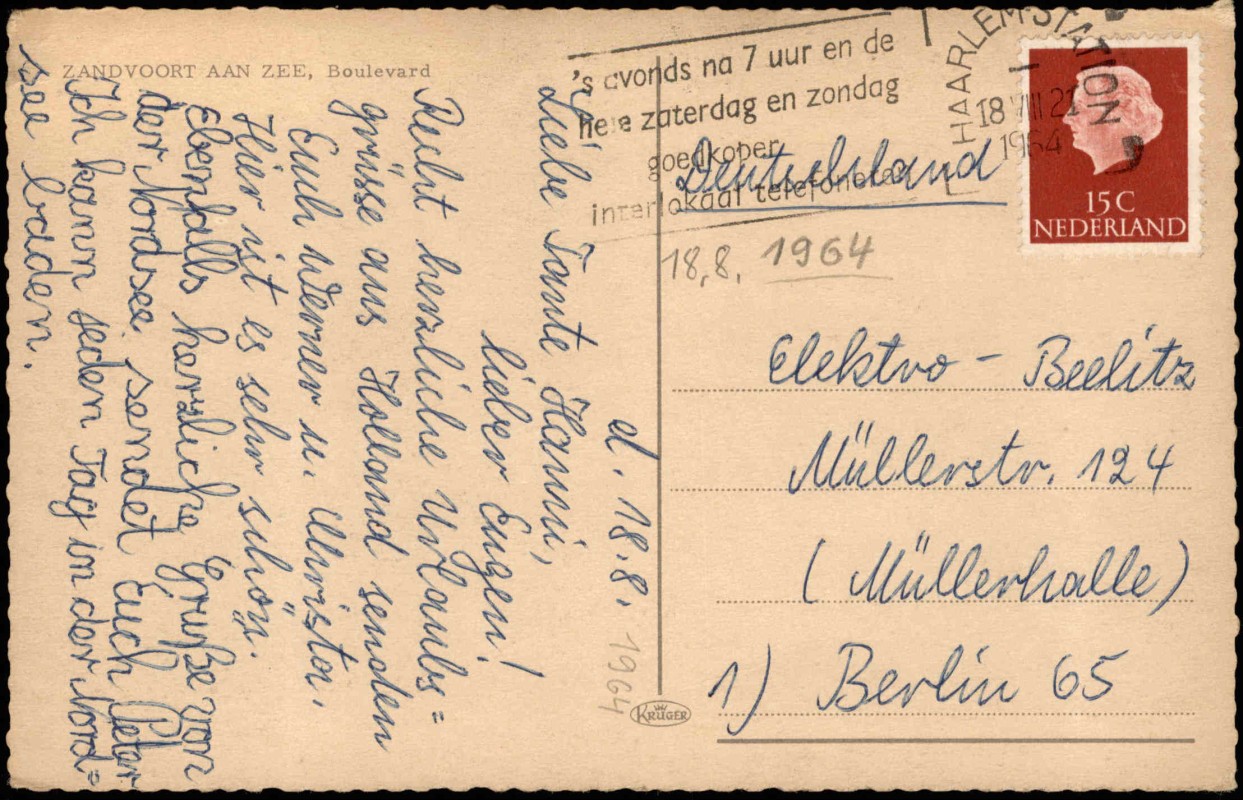 ZANDVOORT AAN ZEE, Boulevard
d. 18.8. 1964
Liebe Tante Hanni,
lieber Eugen!
Recht herzliche Urlaubs=
grüsse aus Holland senden
Euch Werner u. Christa.
Hier ist es sehr schön.
Ebenfalls herzliche Grüße von
der Nordsee sendet Euch Peter
Ich kann jeden Tag in der Nord=
see baden.
's avonds na 7 uur en de
hele zaterdag en zondag
goedkoper
interlokaal telefoneren
HAARLEM-STATION
18 VIII 21
1964
15 C
NEDERLAND
Deutschland
18.8. 1964
Elektro - Beelitz
Müllerstr. 124
(Müllerhalle)
1) Berlin 65
KRÜGER